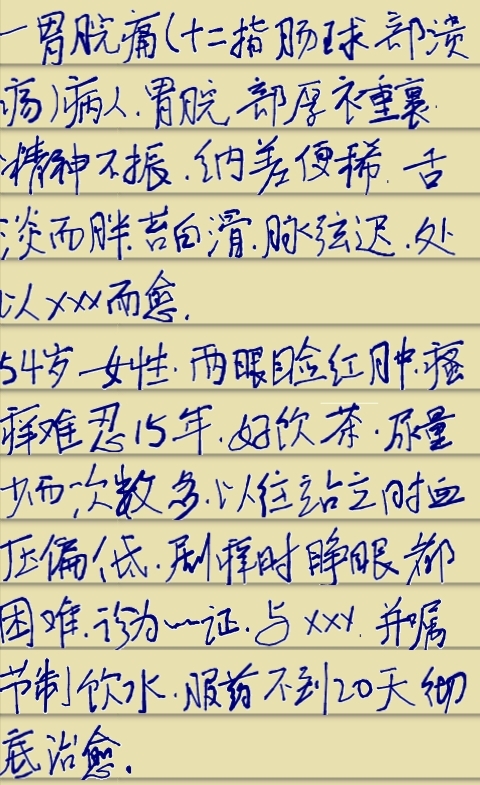 一胃脘痛(十二指肠球部溃
疡)病人.胃脘部厚衣重裹.
精神不振.纳差便稀.舌
淡而胖.苔白滑.脉弦迟.处
以xxx而愈.
54岁女性.两眼睑红肿.瘙
痒难忍15年.好饮茶.尿量
少而次数多.以往站立时血
压偏低.剧痒时睁眼都
困难.诊为~~证.与xxx.并嘱
节制饮水.服药不到20天彻
底治愈.